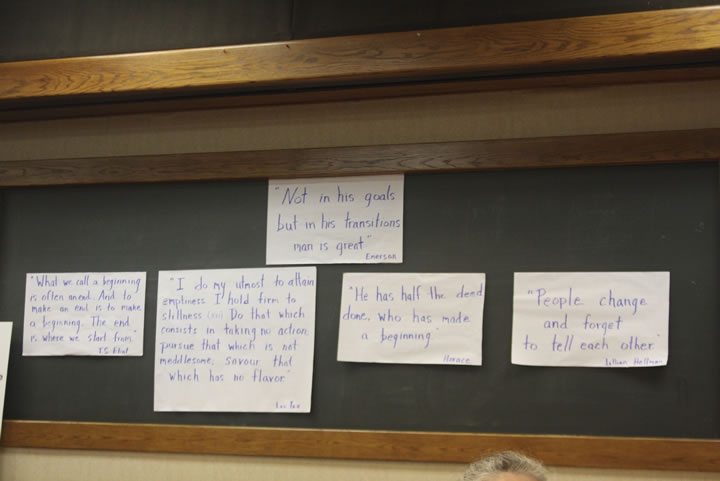 "Not in his goals
but in his transitions
man is great"
Emerson
"What we call a beginning
is often an end. And to
make an end is to make
a beginning. The end
is where we start from."
T.S. Eliot
"I do my utmost to attain
emptiness I hold firm to
stillness (xvi) Do that which
consists in taking no action,
pursue that which is not
meddlesome, savour that
which has no flavor"
Lao Tzu
"He has half the deed
done, who has made
a beginning."
Horace
"People change
and forget
to tell each other."
Lillian Hellman